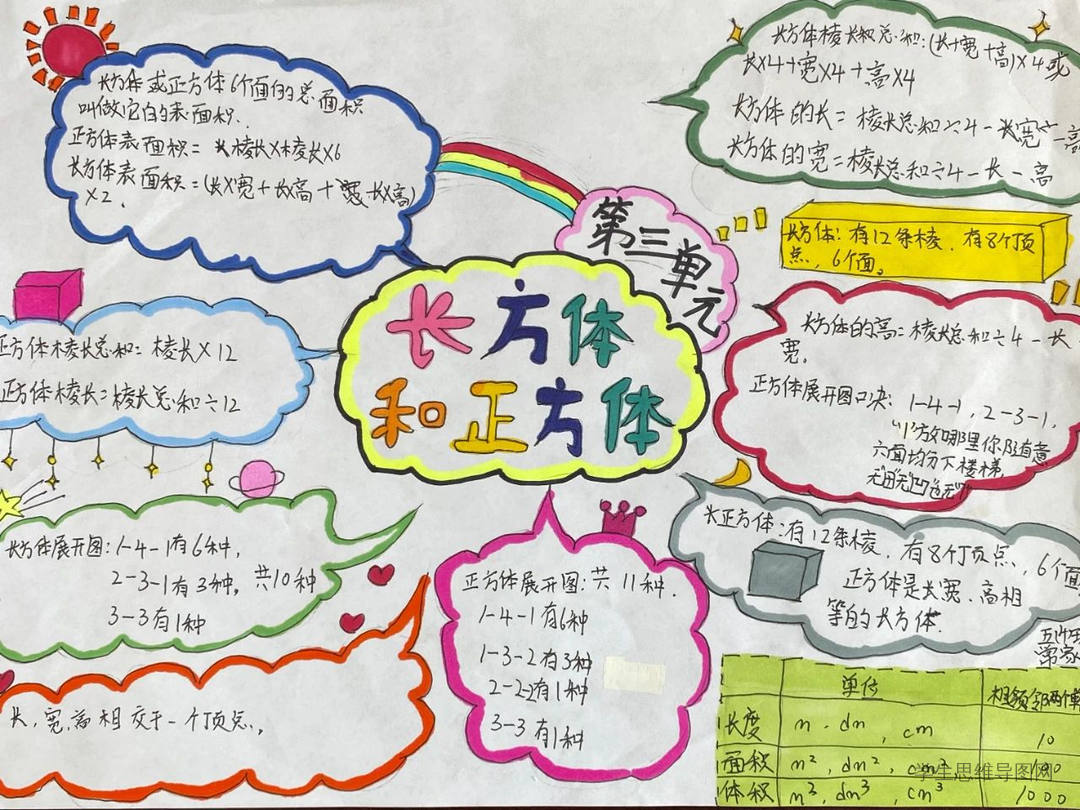 长方体或正方体6个面的总面积
叫做它的表面积.
正方体表面积= 棱长×棱长×6
长方体表面积=(长×宽+长×高+宽×高)
×2.
长方体棱长总和:(长+宽+高)×4或
长×4+宽×4+高×4
长方体的长= 棱长总和÷4-宽-高
长方体的宽=棱长总和÷4-长-高
第三单元
长方体
和正方体
长方体:有12条棱,有8个顶
点,6个面。
正方体棱长总和= 棱长×12
正方体棱长=棱长总和÷12
长方体的高=棱长总和÷4-长-
宽.
正方体展开图口决: 1-4-1,2-3-1,
六面均分下楼梯
长方体展开图:1-4-1有6种,
2-3-1有3种, 共10种
3-3有1种
正方体展开图:共11种.
1-4-1有6种
1-3-2有3种
2-2-2有1种
3-3有1种
正方体:有12条棱,有8个顶点,6个面
正方体是长宽、高相
等的长方体.
长,宽,高相交于一个顶点.
单位
相邻两个单
长度 m. dm, cm 10
面积 m², dm², cm² 100
体积 m³, dm³, cm³ 1000
学生思维导图网